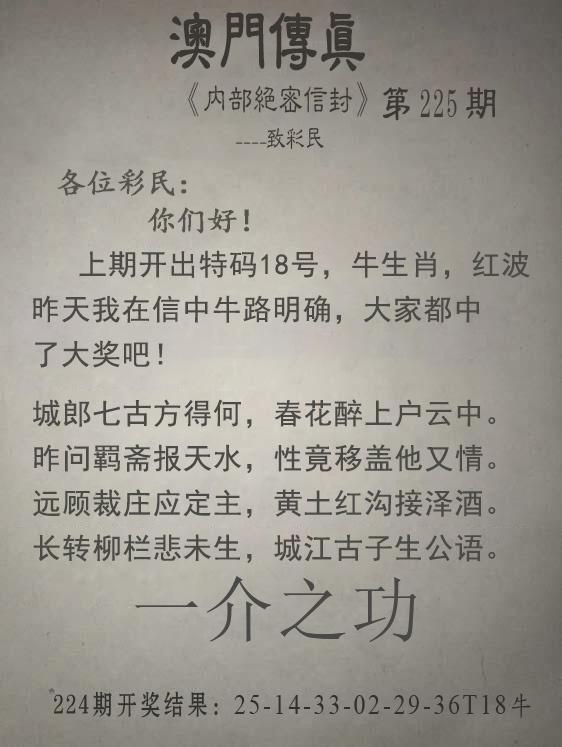 澳門傳眞
《内部絕密信封》第225期
----致彩民
各位彩民：
你们好！
上期开出特码18号，牛生肖，红波
昨天我在信中牛路明确，大家都中
了大奖吧！
城郎七古方得何，春花醉上户云中。
昨问羁斋报天水，性竟移盖他又情。
远顾裁庄应定主，黄土红沟接泽酒。
长转柳栏悲未生，城江古子生公语。
一介之功
224期开奖结果：25-14-33-02-29-36T18牛